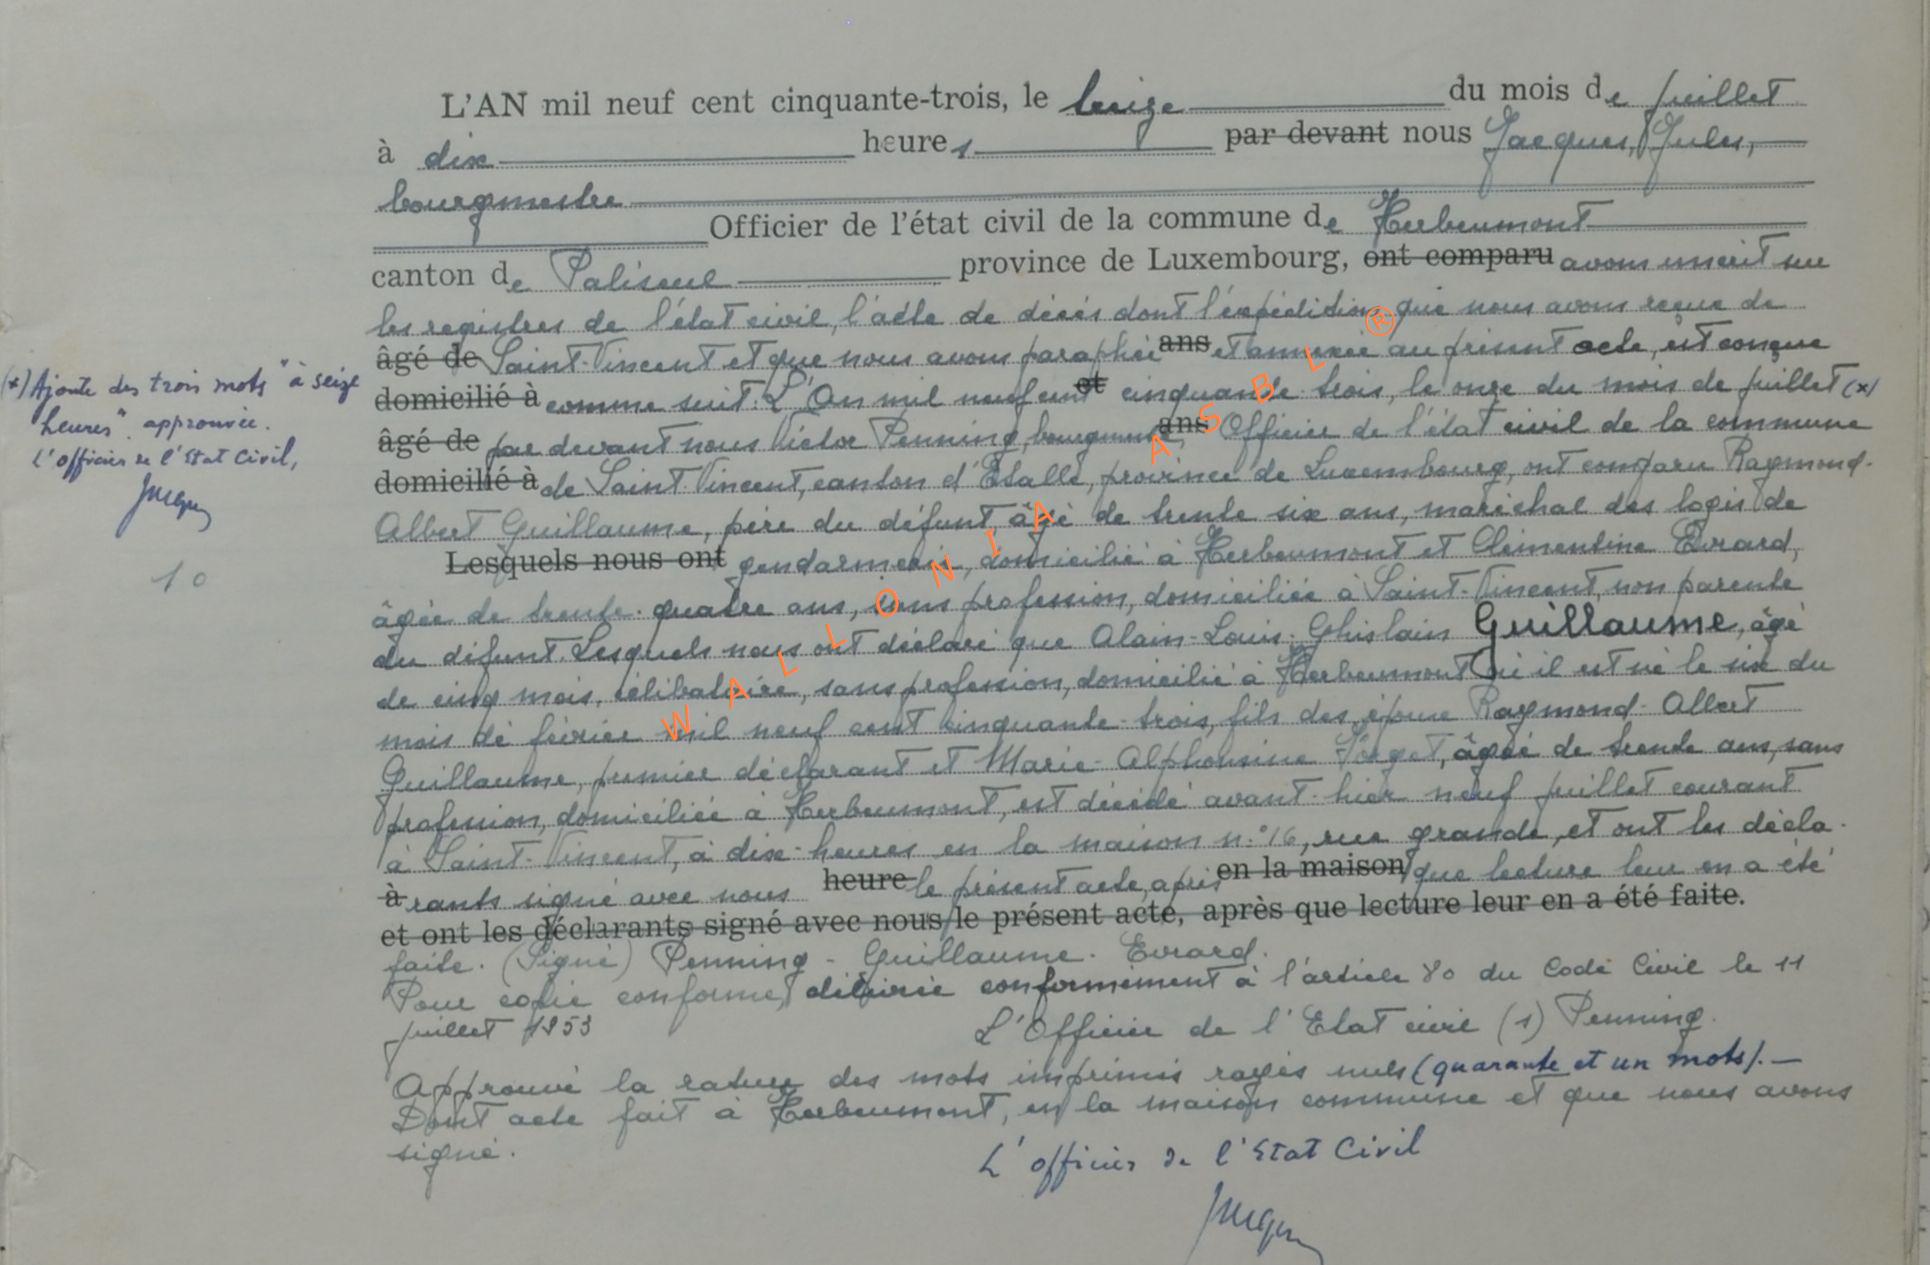 L'AN mil neuf cent cinquante-trois, le treize du mois de juillet
à dix heures par devant nous Jacques, Jules,
bourgmestre
Officier de l'état civil de la commune de Herbeumont
canton de Paliseul province de Luxembourg, ont comparu avons inscrit sur
les registres de l'état civil, l'acte de décès dont l'expédition que nous avons reçue de
âgé de Saint-Vincent et que nous avons paraphée ans et annexée au présent acte, est conçue
domicilié à comme suit. L'An mil neuf cent et cinquante trois, le onze du mois de juillet (x)
âgé de par devant nous Victor Penning, bourgmestre ans Officier de l'état civil de la commune
domicilié à de Saint-Vincent, canton d'Etalle, province de Luxembourg, ont comparu Raymond-
Albert Guillaume, père du défunt, âgé de trente six ans, maréchal des logis de
Lesquels nous ont gendarmerie, domicilié à Herbeumont et Clémentine Evrard,
âgée de trente-quatre ans, sans profession, domiciliée à Saint-Vincent, non parente
du défunt. Lesquels nous ont déclaré que Alain-Louis-Ghislain Guillaume, âgé
de cinq mois, célibataire, sans profession, domicilié à Herbeumont où il est né le six du
mois de février mil neuf cent cinquante-trois, fils des époux Raymond-Albert
Guillaume, premier déclarant et Marie-Alphonsine Forget, âgée de trente ans, sans
profession, domiciliée à Herbeumont, est décédé avant-hier neuf juillet courant
à Saint-Vincent, à dix-heures en la maison n.° 16, rue grande, et ont les décla-
à rants signé avec nous heure le présent acte, après en la maison que lecture leur en a été
et ont les déclarants signé avec nous le présent acte, après que lecture leur en a été faite.
faite. (Signé) Penning - Guillaume. Evrard.
Pour copie conforme, délivrée conformément à l'article 80 du Code Civil le 11
juillet 1953 L'Officier de l'Etat civil (s) Penning.
Approuvé la rature des mots imprimés rayés nuls (quarante et un mots). —
Dont acte fait à Herbeumont, en la maison commune et que nous avons
signé.
L'officier de l'Etat Civil
Jacques
(x) Ajoute des trois mots "à seize
heures" approuvée.
L'officier de l'Etat Civil,
Jacques
10
WALLONIA ASBL ®